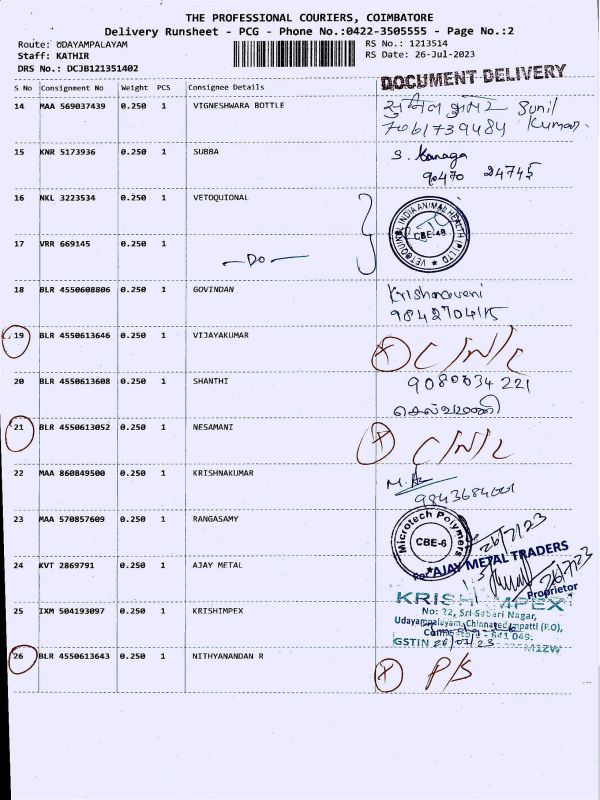 THE PROFESSIONAL COURIERS, COIMBATORE
Delivery Runsheet - PCG - Phone No.:0422-3505555 - Page No.:2
Route: UDAYAMPALAYAM RS No.: 1213514
Staff: KATHIR RS Date: 26-Jul-2023
DRS No.: DCJB121351402
DOCUMENT DELIVERY
S No Consignment No Weight PCS Consignee Details
14 MAA 569037439 0.250 1 VIGNESHWARA BOTTLE
सुनिल कुमार Sunil
7061739484 Kumar.
15 KNR 5173936 0.250 1 SUBBA
S. Kanaga
90470 24745
16 NKL 3223534 0.250 1 VETOQUIONAL
VETOQUINOL INDIA ANIMAL HEALTH (P) LTD
CBE-49
17 VRR 669145 0.250 1
—DO—
18 BLR 4550608806 0.250 1 GOVINDAN
Krishnaveni
9842704115
19 BLR 4550613646 0.250 1 VIJAYAKUMAR
X C/N/L
20 BLR 4550613608 0.250 1 SHANTHI
9080034 221
செல்வமணி
21 BLR 4550613052 0.250 1 NESAMANI
X C/N/L
22 MAA 860849500 0.250 1 KRISHNAKUMAR
9843684001
23 MAA 570857609 0.250 1 RANGASAMY
Microtech Polymers
CBE-6
26/7/23
24 KVT 2869791 0.250 1 AJAY METAL
For AJAY METAL TRADERS
26/7/23
Proprietor
25 IXM 504193097 0.250 1 KRISHIMPEX
KRISHIMPEX
No: 22, Sri Sabari Nagar,
Udayampalayam, Chinnavedampatti (P.O),
Coimbatore - 641 049.
GSTIN 26/07/23 M1ZW
26 BLR 4550613643 0.250 1 NITHYANANDAN R
X P/S